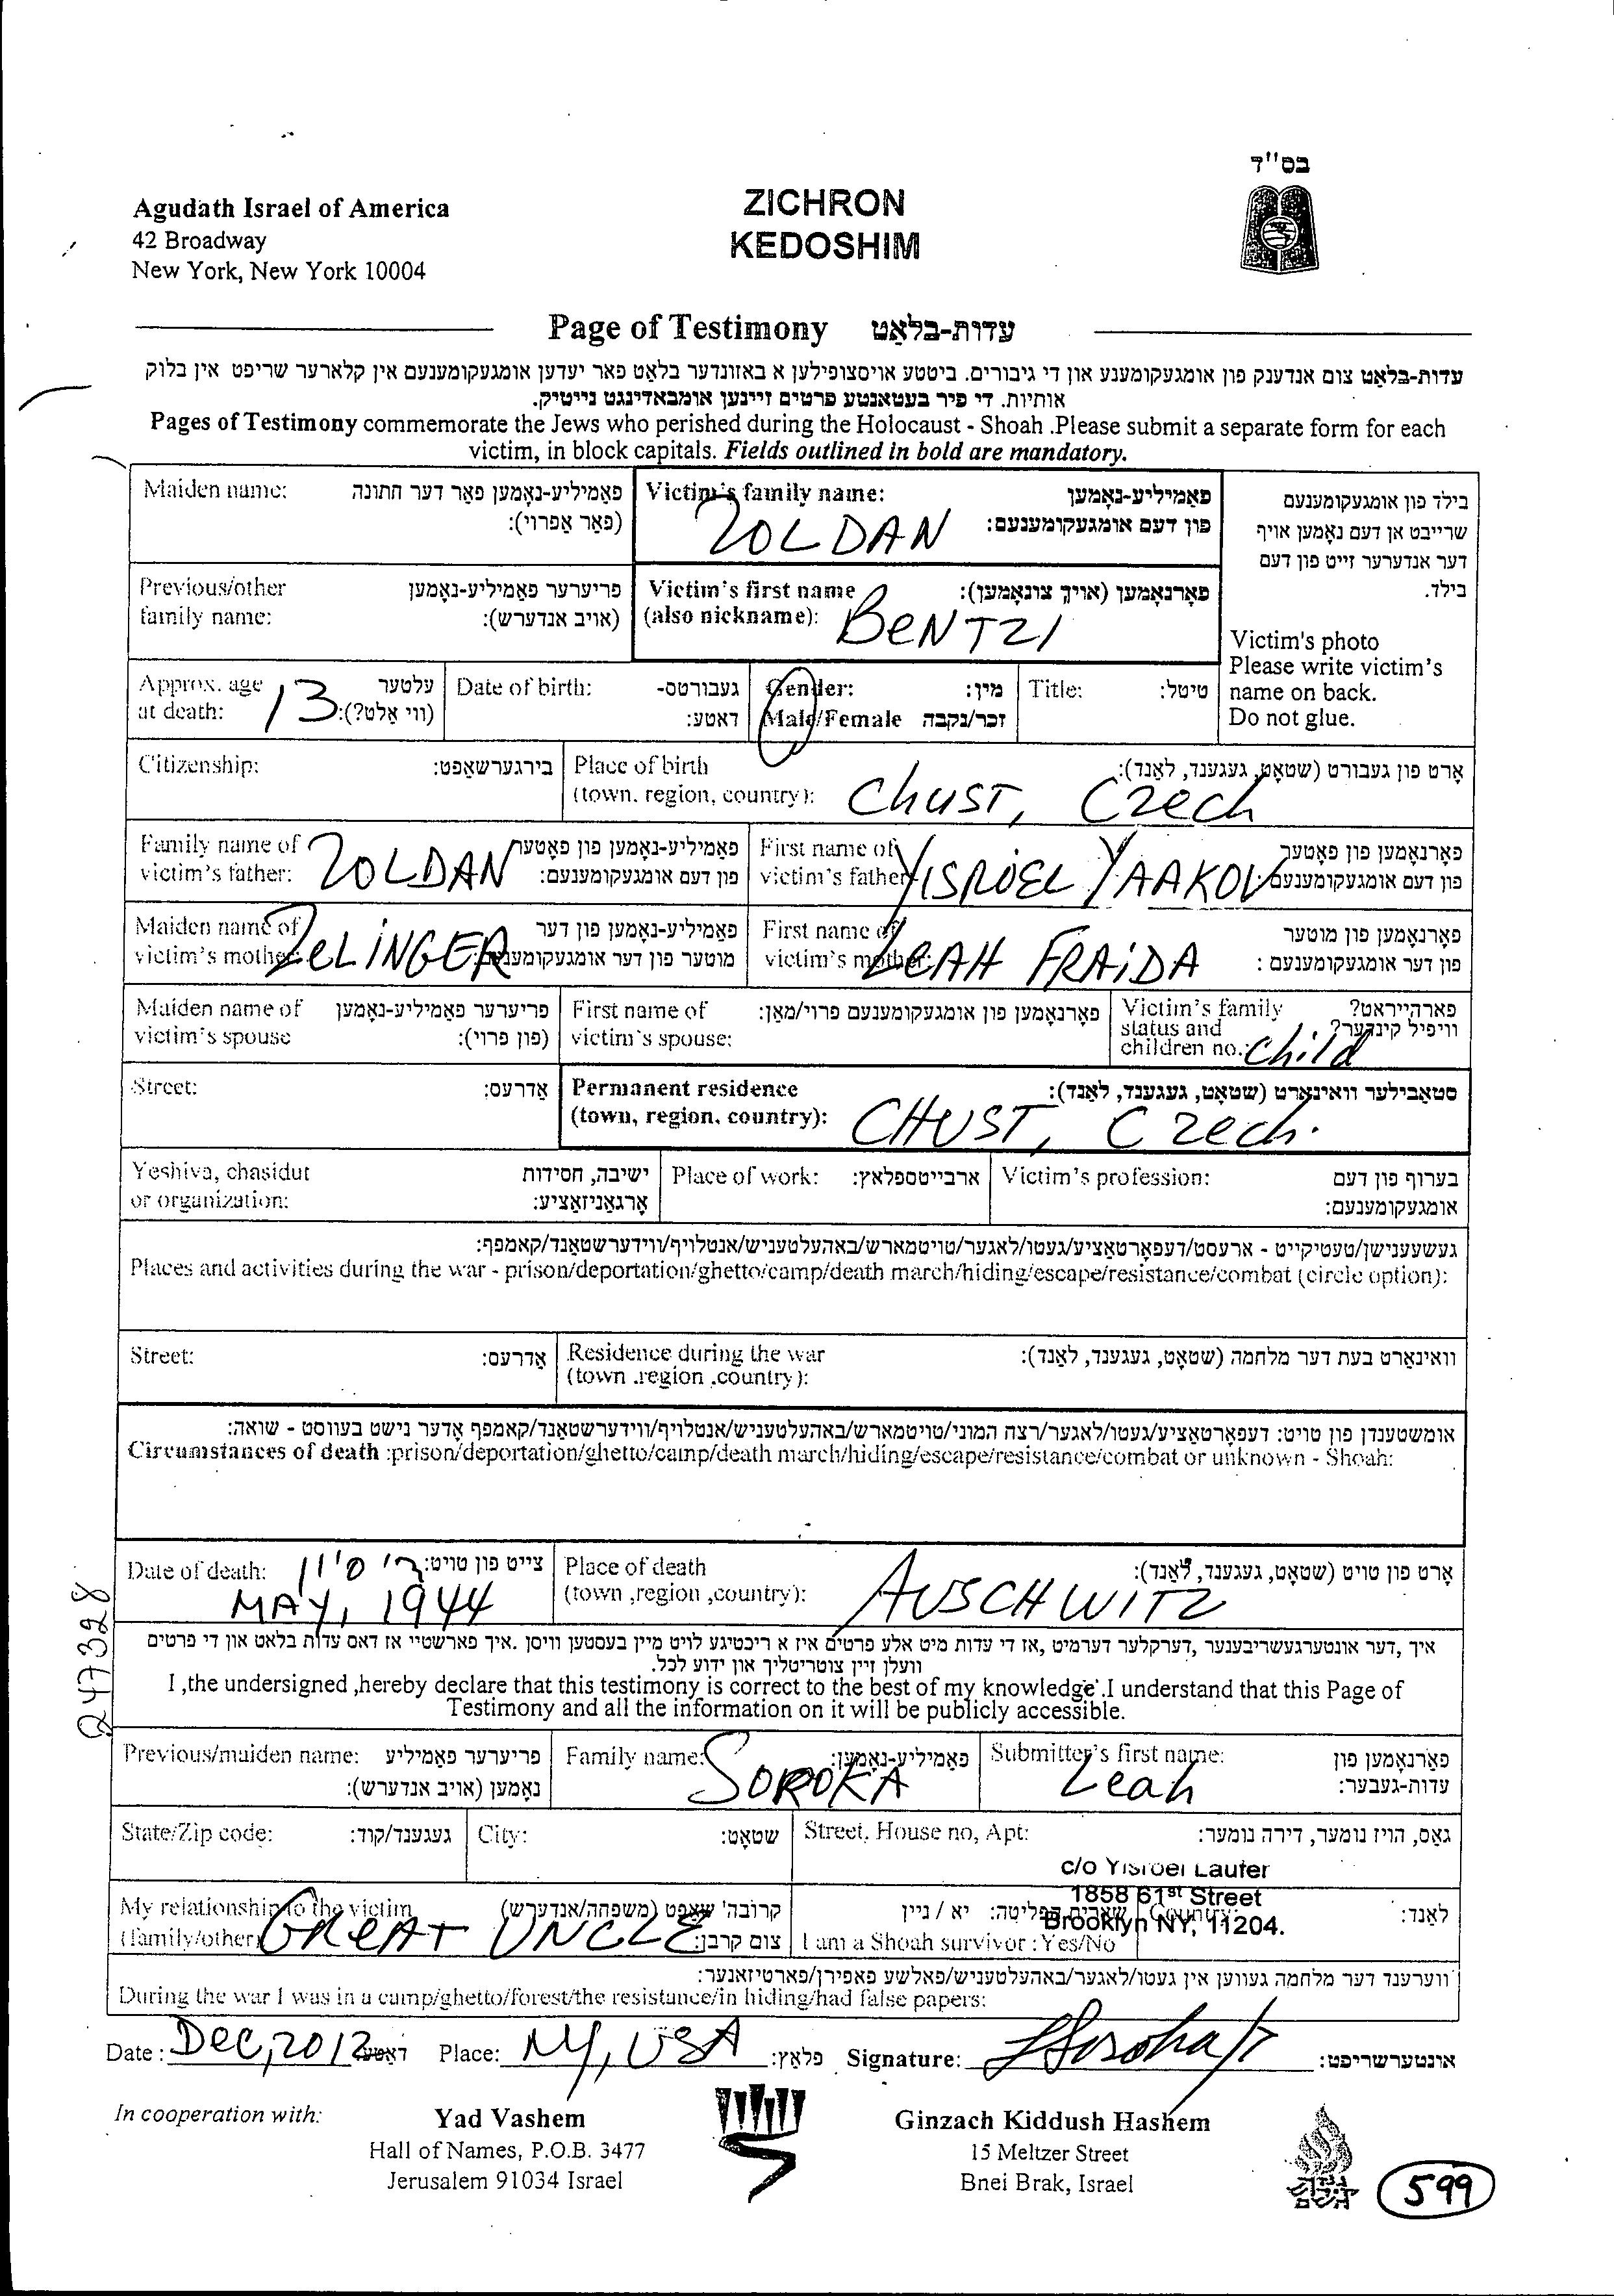 בס"ד
Agudath Israel of America
42 Broadway
New York, New York 10004
ZICHRON
KEDOSHIM
Page of Testimony עדות-בלאַט
עדות-בלאַט צום אנדענק פון אומגעקומענע און די גיבורים. ביטטע אויסצופילען א באזונדער בלאט פאר יעדען אומגעקומענעם אין קלארער שריפט אין בלוק
אותיות. די פיר בעטאנטע פרטים זיינען אומבאדינגט נייטיק.
Pages of Testimony commemorate the Jews who perished during the Holocaust - Shoah .Please submit a separate form for each
victim, in block capitals. Fields outlined in bold are mandatory.
Maiden name: פאַמיליע-נאָמען פאַר דער חתונה
(פאַר אַפרוי):
Victim's family name: פאַמיליע-נאָמען
פון דעם אומגעקומענעם:
ZOLDAN
בילד פון אומגעקומענעם
שרייבט אן דעם נאָמען אויף
דער אנדערער זייט פון דעם
בילד.
Victim's photo
Please write victim's
name on back.
Do not glue.
Previous/other פריערער פאַמיליע-נאָמען
family name: (אויב אנדערש):
Victim's first name פאָרנאָמען (אויך צונאָמען):
(also nickname): BeNTZI
Approx. age עלטער
at death: 13 (ווי אַלט?):
Date of birth: געבורטס-
דאטע:
Gender: מין:
Male/Female זכר/נקבה
Title: טיטל:
Citizenship: בירגערשאַפט:
Place of birth אָרט פון געבורט (שטאָט, געגענד, לאַנד):
(town, region, country): CHUST, Czech
Family name of פאַמיליע-נאָמען פון פאָטער
victim's father: ZOLDAN פון דעם אומגעקומענעם:
First name of פאָרנאָמען פון פאָטער
victim's father YISROEL YAAKOV פון דעם אומגעקומענעם
Maiden name of פאַמיליע-נאָמען פון דער
victim's mother: ZeLiNGER מוטער פון דער אומגעקומענעם:
First name of פאָרנאָמען פון מוטער
victim's mother: LEAH FRAiDA פון דער אומגעקומענעם :
Maiden name of פריערער פאַמיליע-נאָמען
victim's spouse (פון פרוי):
First name of פאָרנאָמען פון אומגעקומענעם פרוי/מאַן:
victim's spouse:
Victim's family פארהייראט?
status and וויפיל קינדער?
children no.: Child
Street: אַדרעס:
Permanent residence סטאַבילער וואינאָרט (שטאָט, געגענד, לאַנד):
(town, region, country): CHUST, Czech.
Yeshiva, chasidut ישיבה, חסידות
or organization: אָרגאַניזאַציע:
Place of work: ארבייטספלאַץ:
Victim's profession: בערוף פון דעם
אומגעקומענעם:
געשעענישן/טעטיקייט - ארעסט/דעפאָרטאַציע/געטו/לאַגער/טויטמארש/באהעלטעניש/אנטלויף/ווידערשטאַנד/קאמפף:
Places and activities during the war - prison/deportation/ghetto/camp/death march/hiding/escape/resistance/combat (circle option):
Street: אַדרעס:
Residence during the war וואינאָרט בעת דער מלחמה (שטאָט, געגענד, לאַנד):
(town .region .country):
אומשטענדן פון טויט: דעפאָרטאַציע/געטו/לאַגער/רצח המוני/טויטמארש/באהעלטעניש/אנטלויף/ווידערשטאַנד/קאמפף אָדער נישט בעווסט - שואה:
Circumstances of death :prison/deportation/ghetto/camp/death march/hiding/escape/resistance/combat or unknown - Shoah:
Date of death: צייט פון טויט:
MAY, 1944
Place of death אָרט פון טויט (שטאָט, געגענד, לאַנד):
(town ,region ,country): AUSCHWITZ
247328
איך ,דער אונטערגעשריבענער ,דערקלער דערמיט ,אז די עדות מיט אלע פרטים איז א ריכטיגע לויט מיין בעסטען וויסן .איך פארשטיי אז דאס עדות בלאט און די פרטים
וועלן זיין צוטריטליך און ידוע לכל.
I ,the undersigned ,hereby declare that this testimony is correct to the best of my knowledge .I understand that this Page of
Testimony and all the information on it will be publicly accessible.
Previous/maiden name: פריערער פאַמיליע
נאָמען (אויב אנדערש):
Family name: פאַמיליע-נאָמען:
SOROKA
Submitter's first name: פאָרנאָמען פון
עדות-געבער:
Leah
State/Zip code: געגענד/קוד:
City: שטאָט:
Street, House no, Apt: גאַס, הויז נומער, דירה נומער:
c/o Yisroel Laufer
1858 61st Street
Brooklyn NY, 11204.
My relationship to the victim קרובה' שאַפט (משפחה/אנדערש)
(family/other) GReAT UNCLE צום קרבן:
שארית הפליטה: יא / ניין
I am a Shoah survivor : Yes/No
Country: לאַנד:
ווערענד דער מלחמה געווען אין געטו/לאַגער/באהעלטעניש/פאלשע פאפירן/פארטיזאנער:
During the war I was in a camp/ghetto/forest/the resistance/in hiding/had false papers:
Date : Dec, 2012 דאטע: Place: NY, USA פלאַץ: Signature: LSoroka אונטערשריפט:
In cooperation with:
Yad Vashem
Hall of Names, P.O.B. 3477
Jerusalem 91034 Israel
Ginzach Kiddush Hashem
15 Meltzer Street
Bnei Brak, Israel
599